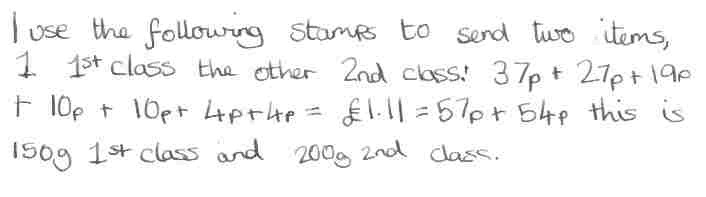 I use the following stamps to send two items,
1 1st class the other 2nd class! 37p + 27p + 19p
+ 10p + 10p + 4p + 4p = £1.11 = 57p + 54p this is
150g 1st class and 200g 2nd class.